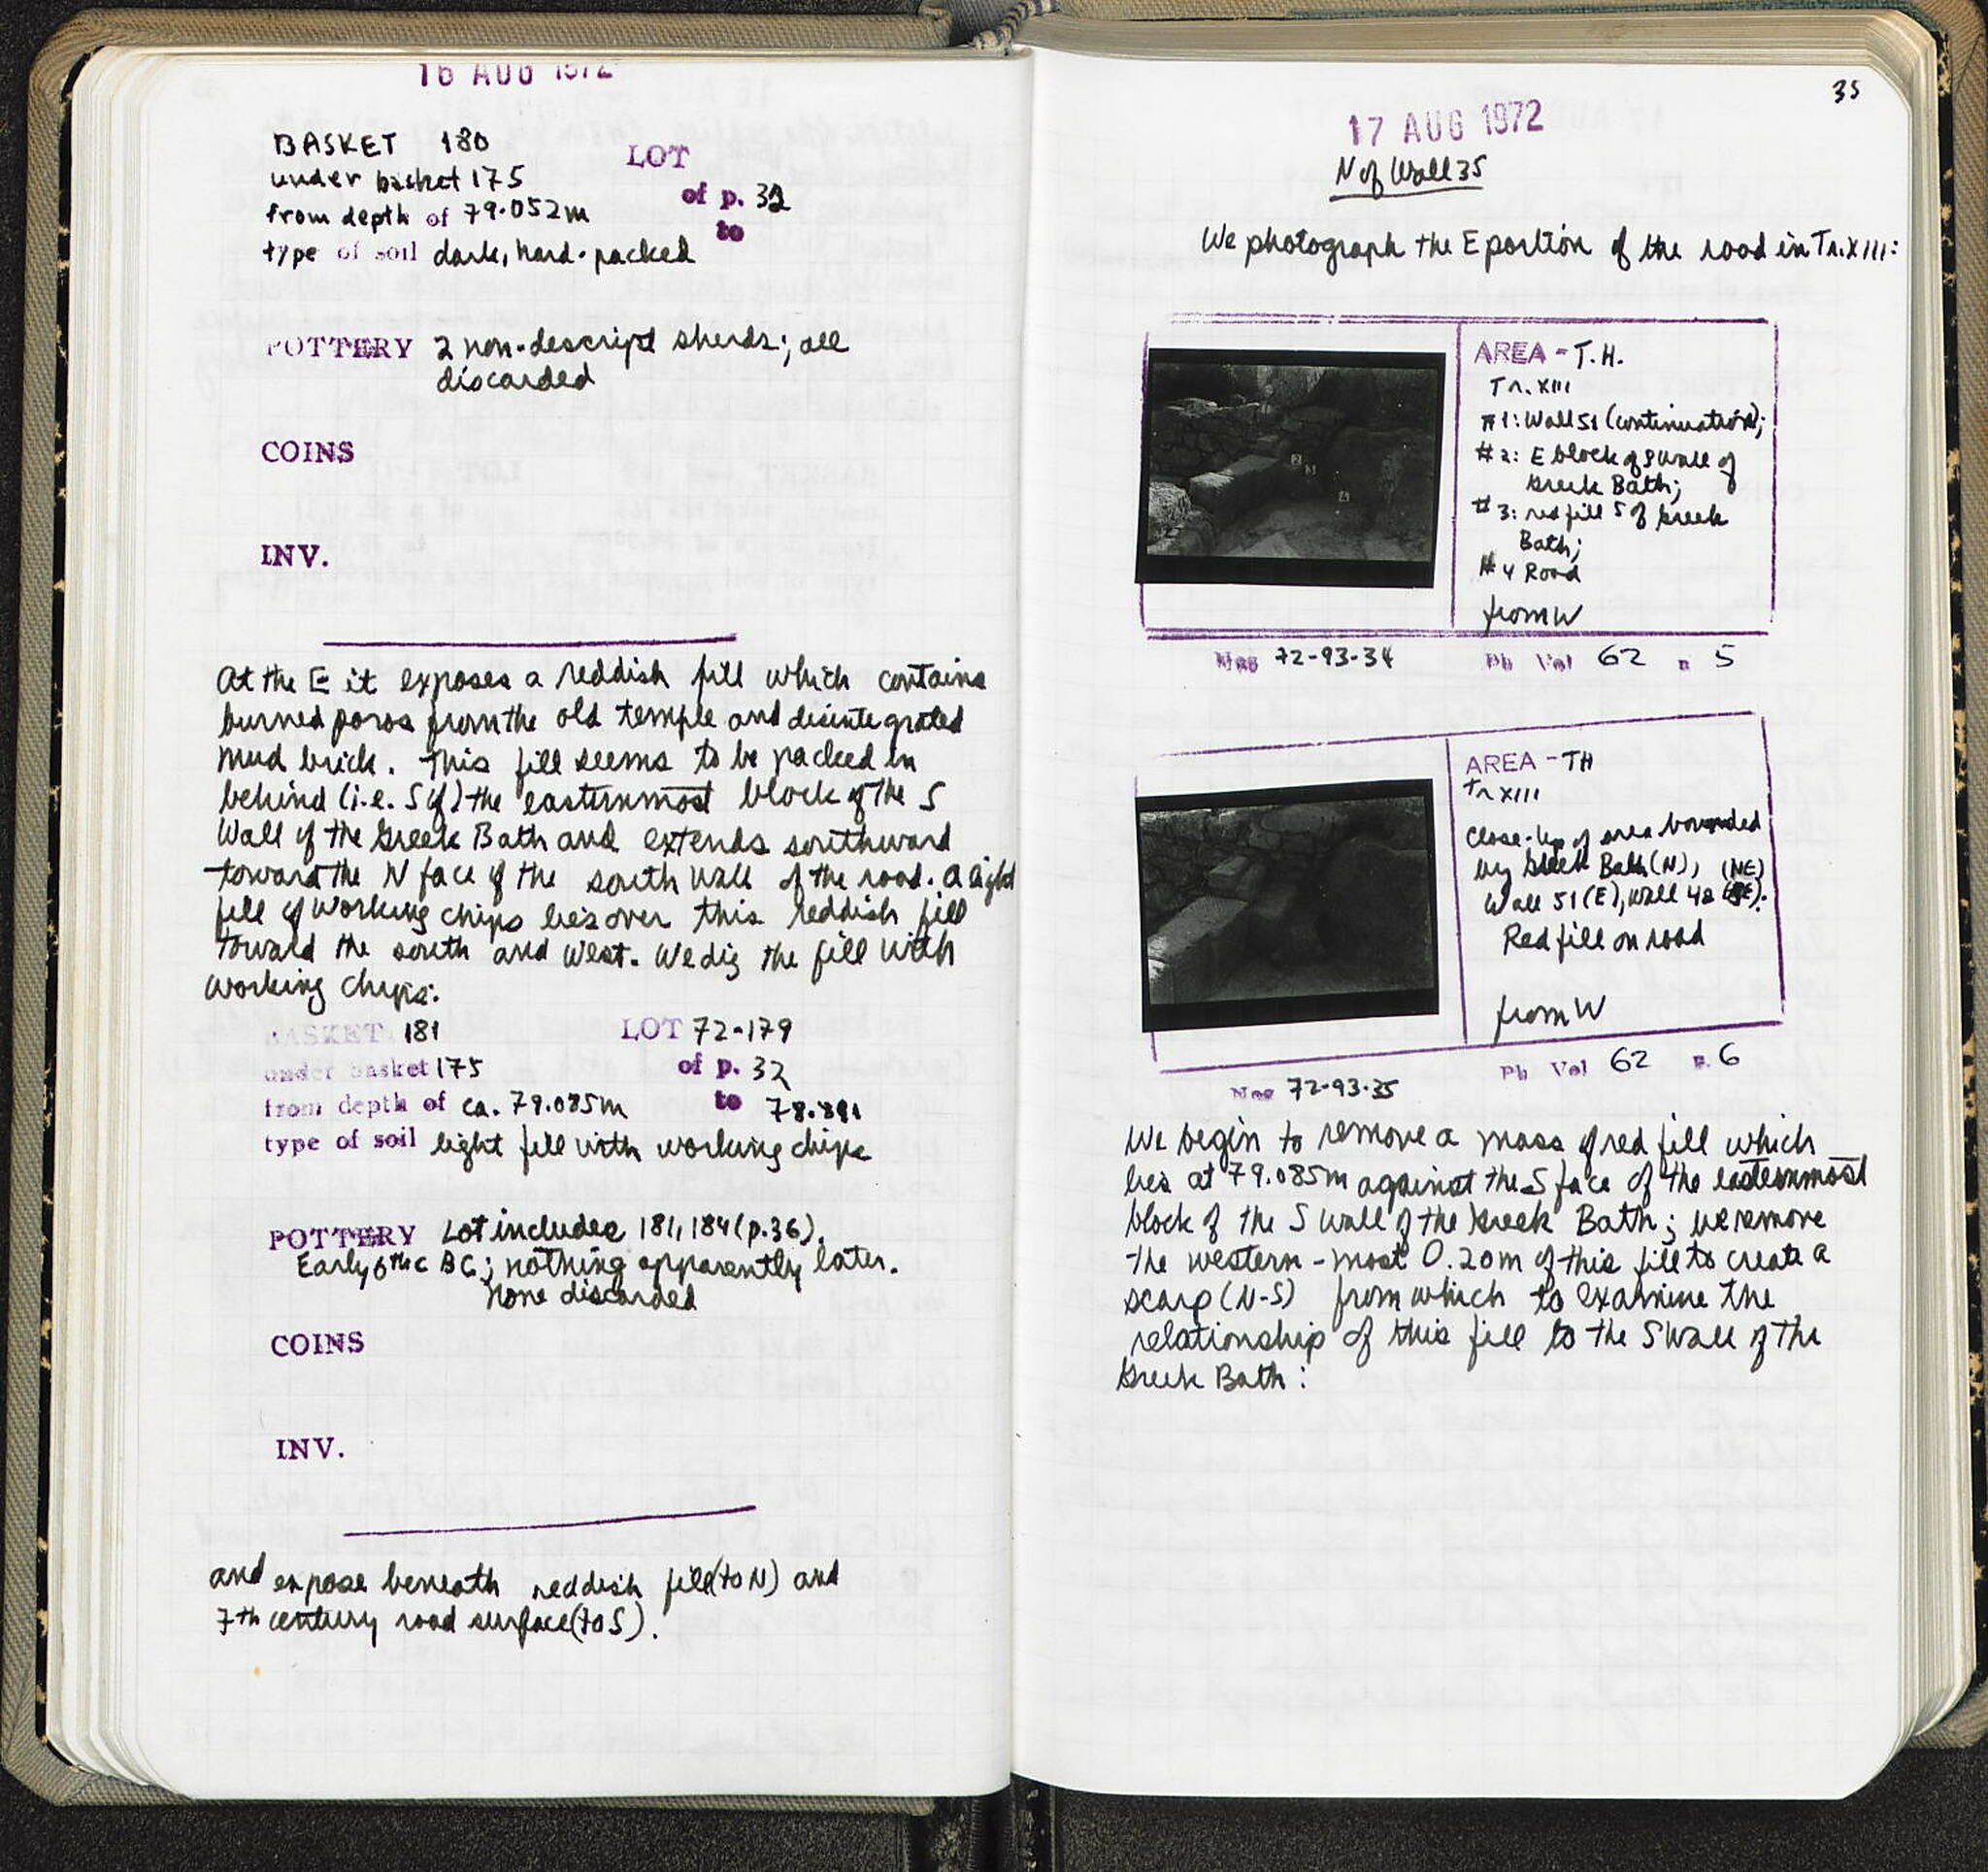 16 AUG 1972
BASKET 180
under basket 175
LOT
of p. 32
from depth of 79.052m
to
type of soil dark, hard-packed
POTTERY 2 non-descript sherds; all
discarded
COINS
INV.
At the E it exposes a reddish fill which contains
burned poros from the old temple and disintegrated
mud brick. This fill seems to be packed in
behind (i.e. S of) the easternmost block of the S
Wall of the Greek Bath and extends southward
toward the N face of the south wall of the road. A light
fill of working chips lies over this reddish fill
toward the south and west. We dig the fill with
working chips:
BASKET 181
LOT 72-179
under basket 175
of p. 32
from depth of ca. 79.085m
to 78.891
type of soil light fill with working chips
POTTERY Lot includes 181, 184 (p.36).
Early 6th c BC; nothing apparently later.
None discarded
COINS
INV.
and expose beneath reddish fill (to N) and
7th century road surface (to S).
35
17 AUG 1972
N of Wall 35
We photograph the E portion of the road in Tr. XIII:
AREA - T.H.
Tr. XIII
#1: Wall 51 (continuation);
#2: E block of S wall of
Greek Bath;
#3: red fill S of Greek
Bath;
#4 Road
from W
2
3
4
Neg 72-93-34
Ph Vol 62 p. 5
AREA - TH
Tr XIII
Close-up of area bounded
by Greek Bath (N), (NE)
Wall 51 (E), Wall 42 (SE):
Red fill on road
from W
Neg 72-93-35
Ph Vol 62 p. 6
We begin to remove a mass of red fill which
lies at 79.085m against the S face of the easternmost
block of the S wall of the Greek Bath; we remove
the western-most 0.20m of this fill to create a
scarp (N-S) from which to examine the
relationship of this fill to the S wall of the
Greek Bath: